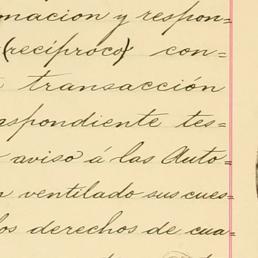 macion y respon=
(recíproco) con=
transacción
spondiente tes=
aviso á las Auto=
ventilado sus cues=
los derechos de cua=